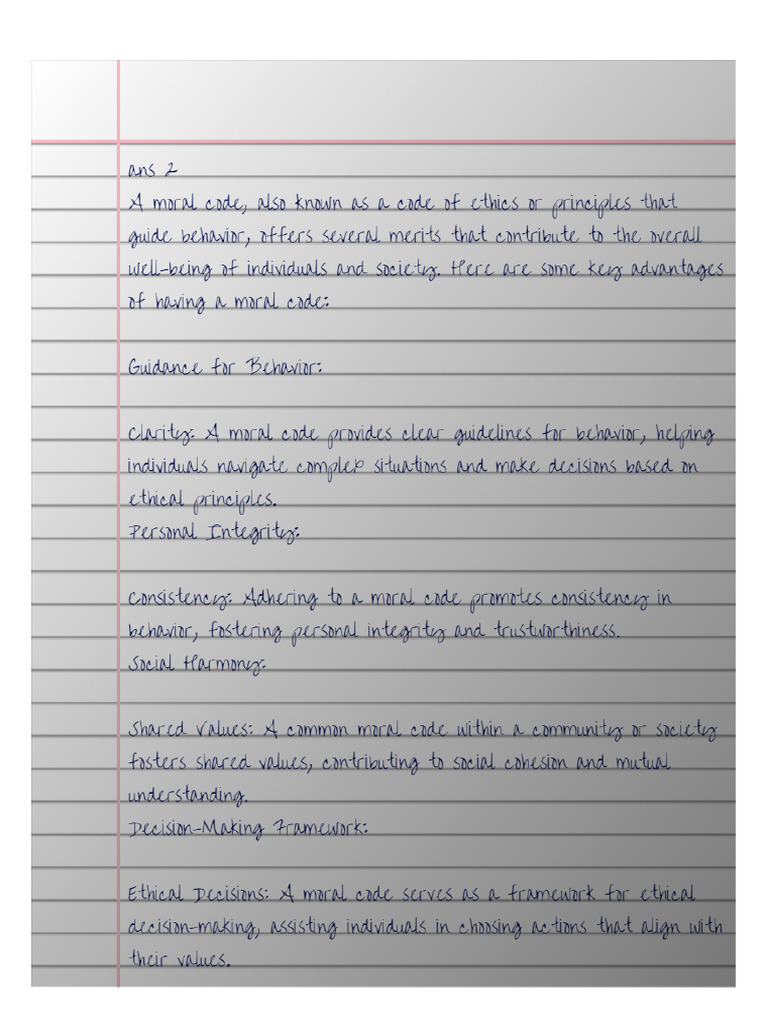 ans 2
A moral code, also known as a code of ethics or principles that
guide behavior, offers several merits that contribute to the overall
well-being of individuals and society. Here are some key advantages
of having a moral code:
Guidance for Behavior:
Clarity: A moral code provides clear guidelines for behavior, helping
individuals navigate complex situations and make decisions based on
ethical principles.
Personal Integrity:
Consistency: Adhering to a moral code promotes consistency in
behavior, fostering personal integrity and trustworthiness.
Social Harmony:
Shared Values: A common moral code within a community or society
fosters shared values, contributing to social cohesion and mutual
understanding.
Decision-Making Framework:
Ethical Decisions: A moral code serves as a framework for ethical
decision-making, assisting individuals in choosing actions that align with
their values.